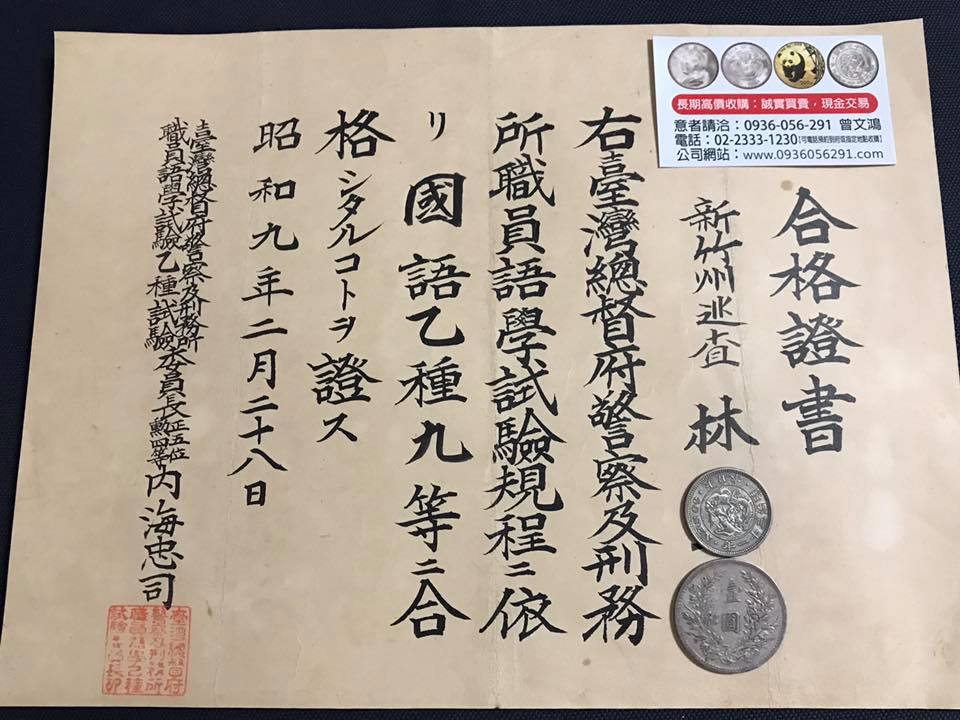 合格證書
新竹州巡查 林
右臺灣總督府警察及刑務
所職員語學試驗規程ニ依
リ國語乙種九等ニ合
格シタルコトヲ證ス
昭和九年二月二十八日
臺灣總督府警察及刑務所
職員語學試驗乙種試驗委員長正五位勳四等內海忠司
長期高價收購:誠實買賣,現金交易
意者請洽:0936-056-291 曾文鴻
電話:02-2333-1230(可電話預約到府或指定地點收購)
公司網站:www.0936056291.com
壹圓